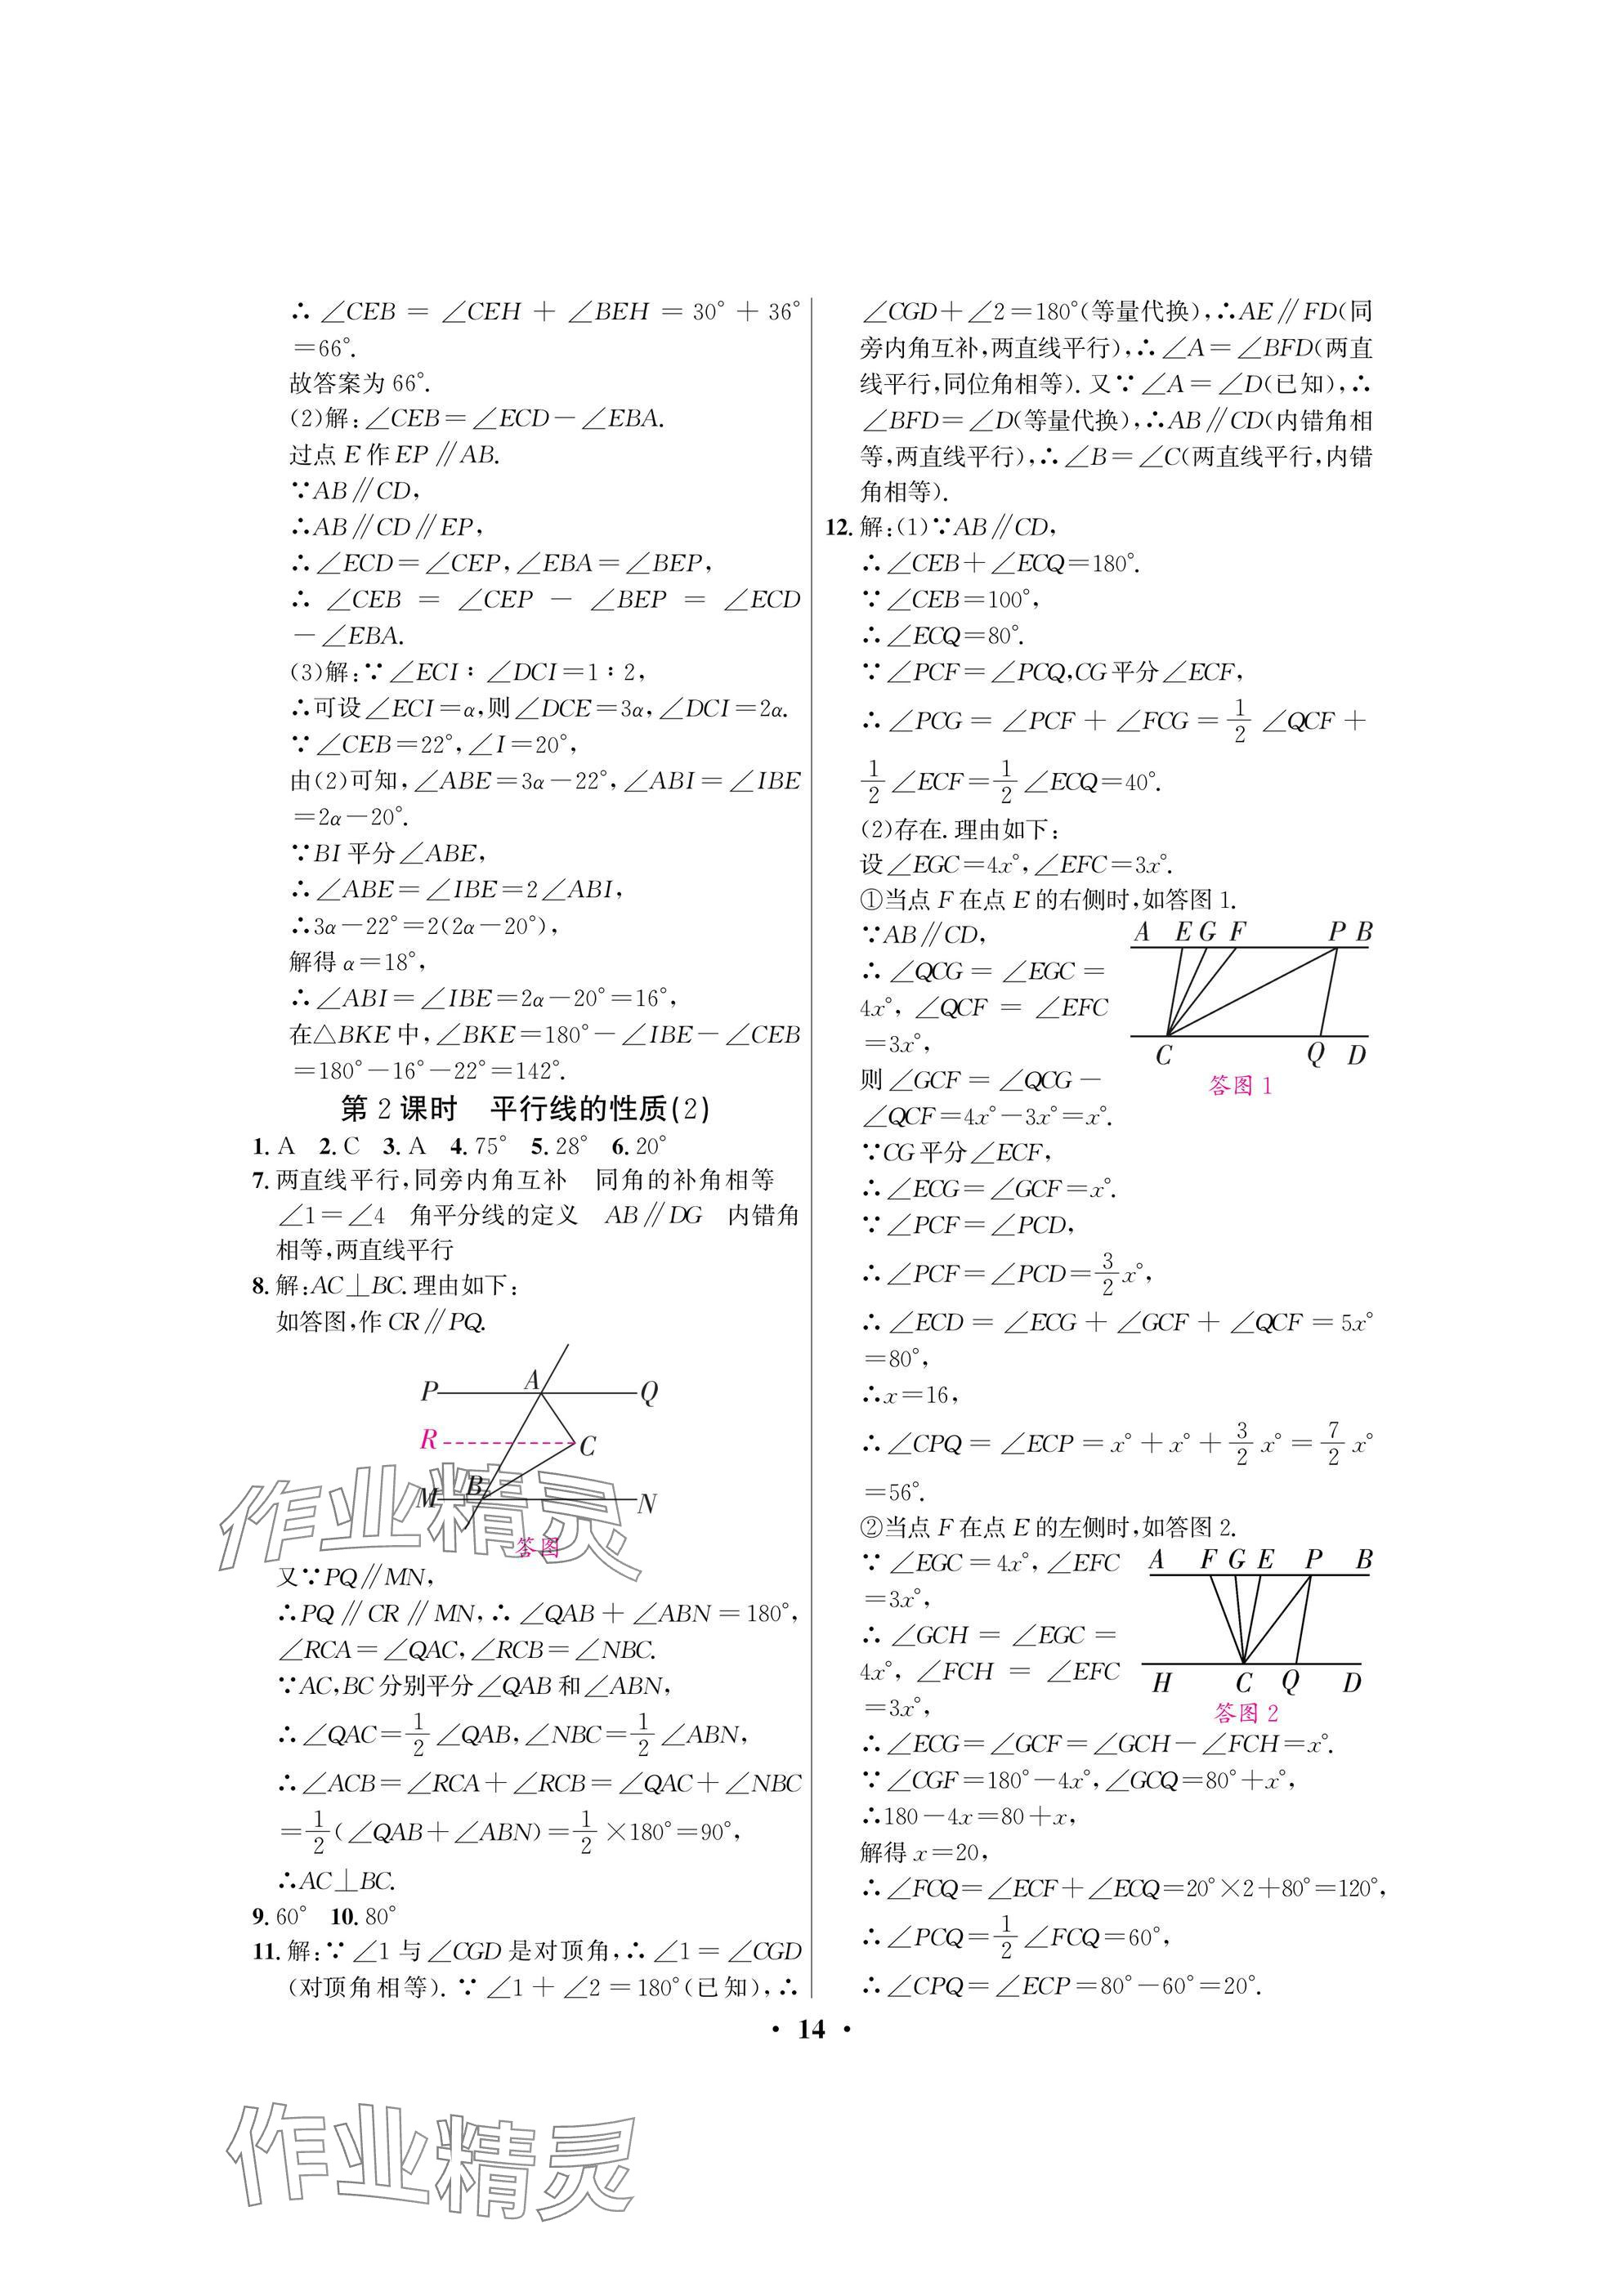 ∴ ∠CEB = ∠CEH + ∠BEH = 30° + 36°
=66°.
故答案为 66°.
(2)解:∠CEB=∠ECD-∠EBA.
过点 E 作 EP∥AB.
∵AB∥CD,
∴AB∥CD∥EP,
∴∠ECD=∠CEP,∠EBA=∠BEP,
∴ ∠CEB = ∠CEP - ∠BEP = ∠ECD
-∠EBA.
(3)解:∵∠ECI∶∠DCI=1∶2,
∴可设∠ECI=α,则∠DCE=3α,∠DCI=2α.
∵∠CEB=22°,∠I=20°,
由(2)可知,∠ABE=3α-22°,∠ABI=∠IBE
=2α-20°.
∵BI 平分∠ABE,
∴∠ABE=∠IBE=2∠ABI,
∴3α-22°=2(2α-20°),
解得 α=18°,
∴∠ABI=∠IBE=2α-20°=16°,
在△BKE 中,∠BKE=180°-∠IBE-∠CEB
=180°-16°-22°=142°.
第 2 课时 平行线的性质(2)
1. A 2. C 3. A 4. 75° 5. 28° 6. 20°
7. 两直线平行,同旁内角互补 同角的补角相等
∠1=∠4 角平分线的定义 AB∥DG 内错角
相等,两直线平行
8. 解:AC⊥BC. 理由如下:
如答图,作 CR∥PQ.
P A Q
R C
M B N
答图
又∵PQ∥MN,
∴PQ∥CR∥MN,∴∠QAB+∠ABN=180°,
∠RCA=∠QAC,∠RCB=∠NBC.
∵AC,BC 分别平分∠QAB 和∠ABN,
∴∠QAC=1/2∠QAB,∠NBC=1/2∠ABN,
∴∠ACB=∠RCA+∠RCB=∠QAC+∠NBC
=1/2(∠QAB+∠ABN)=1/2×180°=90°,
∴AC⊥BC.
9. 60° 10. 80°
11. 解:∵∠1 与∠CGD 是对顶角,∴∠1=∠CGD
(对顶角相等). ∵∠1+∠2=180°(已知),∴
∠CGD+∠2=180°(等量代换),∴AE∥FD(同
旁内角互补,两直线平行),∴∠A=∠BFD(两直
线平行,同位角相等). 又∵∠A=∠D(已知),∴
∠BFD=∠D(等量代换),∴AB∥CD(内错角相
等,两直线平行),∴∠B=∠C(两直线平行,内错
角相等).
12. 解:(1)∵AB∥CD,
∴∠CEB+∠ECQ=180°.
∵∠CEB=100°,
∴∠ECQ=80°.
∵∠PCF=∠PCQ,CG 平分∠ECF,
∴∠PCG=∠PCF+∠FCG=1/2∠QCF+
1/2∠ECF=1/2∠ECQ=40°.
(2)存在. 理由如下:
设∠EGC=4x°,∠EFC=3x°.
①当点 F 在点 E 的右侧时,如答图 1.
∵AB∥CD,
∴∠QCG=∠EGC=
4x°,∠QCF=∠EFC
=3x°,
则∠GCF=∠QCG-
∠QCF=4x°-3x°=x°.
A E G F P B
C Q D
答图 1
∵CG 平分∠ECF,
∴∠ECG=∠GCF=x°.
∵∠PCF=∠PCD,
∴∠PCF=∠PCD=3/2x°,
∴∠ECD=∠ECG+∠GCF+∠QCF=5x°
=80°,
∴x=16,
∴∠CPQ=∠ECP=x°+x°+3/2x°=7/2x°
=56°.
②当点 F 在点 E 的左侧时,如答图 2.
∵∠EGC=4x°,∠EFC
=3x°,
∴∠GCH=∠EGC=
4x°,∠FCH=∠EFC
=3x°,
A F G E P B
H C Q D
答图 2
∴∠ECG=∠GCF=∠GCH-∠FCH=x°.
∵∠CGF=180°-4x°,∠GCQ=80°+x°,
∴180-4x=80+x,
解得 x=20,
∴∠FCQ=∠ECF+∠ECQ=20°×2+80°=120°,
∴∠PCQ=1/2∠FCQ=60°,
∴∠CPQ=∠ECP=80°-60°=20°.
• 14 •
作业精灵
作业精灵